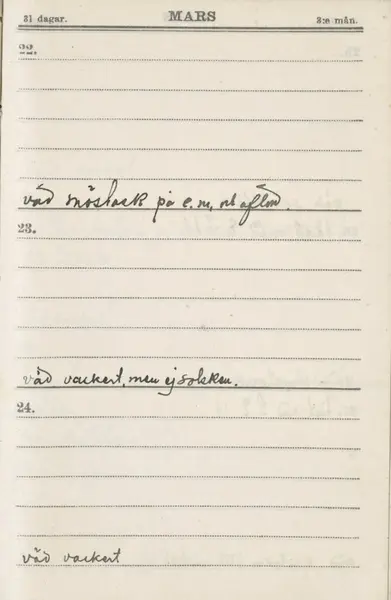 31 dagar. MARS 3:e mån.
22.
väd snöslask på e.m. och afton.
23.
väd vackert, men ej solsken.
24.
väd vackert